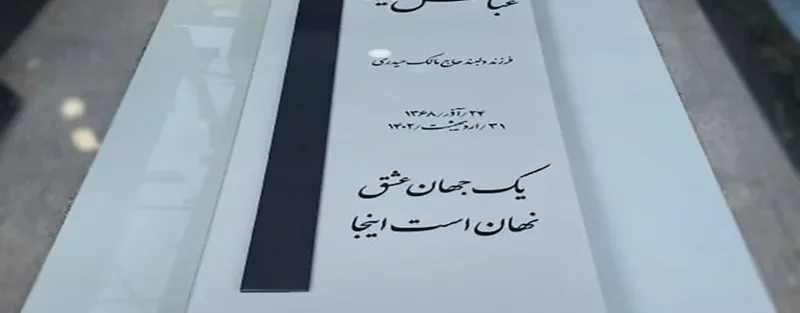 فرزند دلبند حاج مالک حیدری
۲۴/آذر/۱۳۶۸
۳۱/اردیبهشت/۱۴۰۲
یک جهان عشق
نهان است اینجا